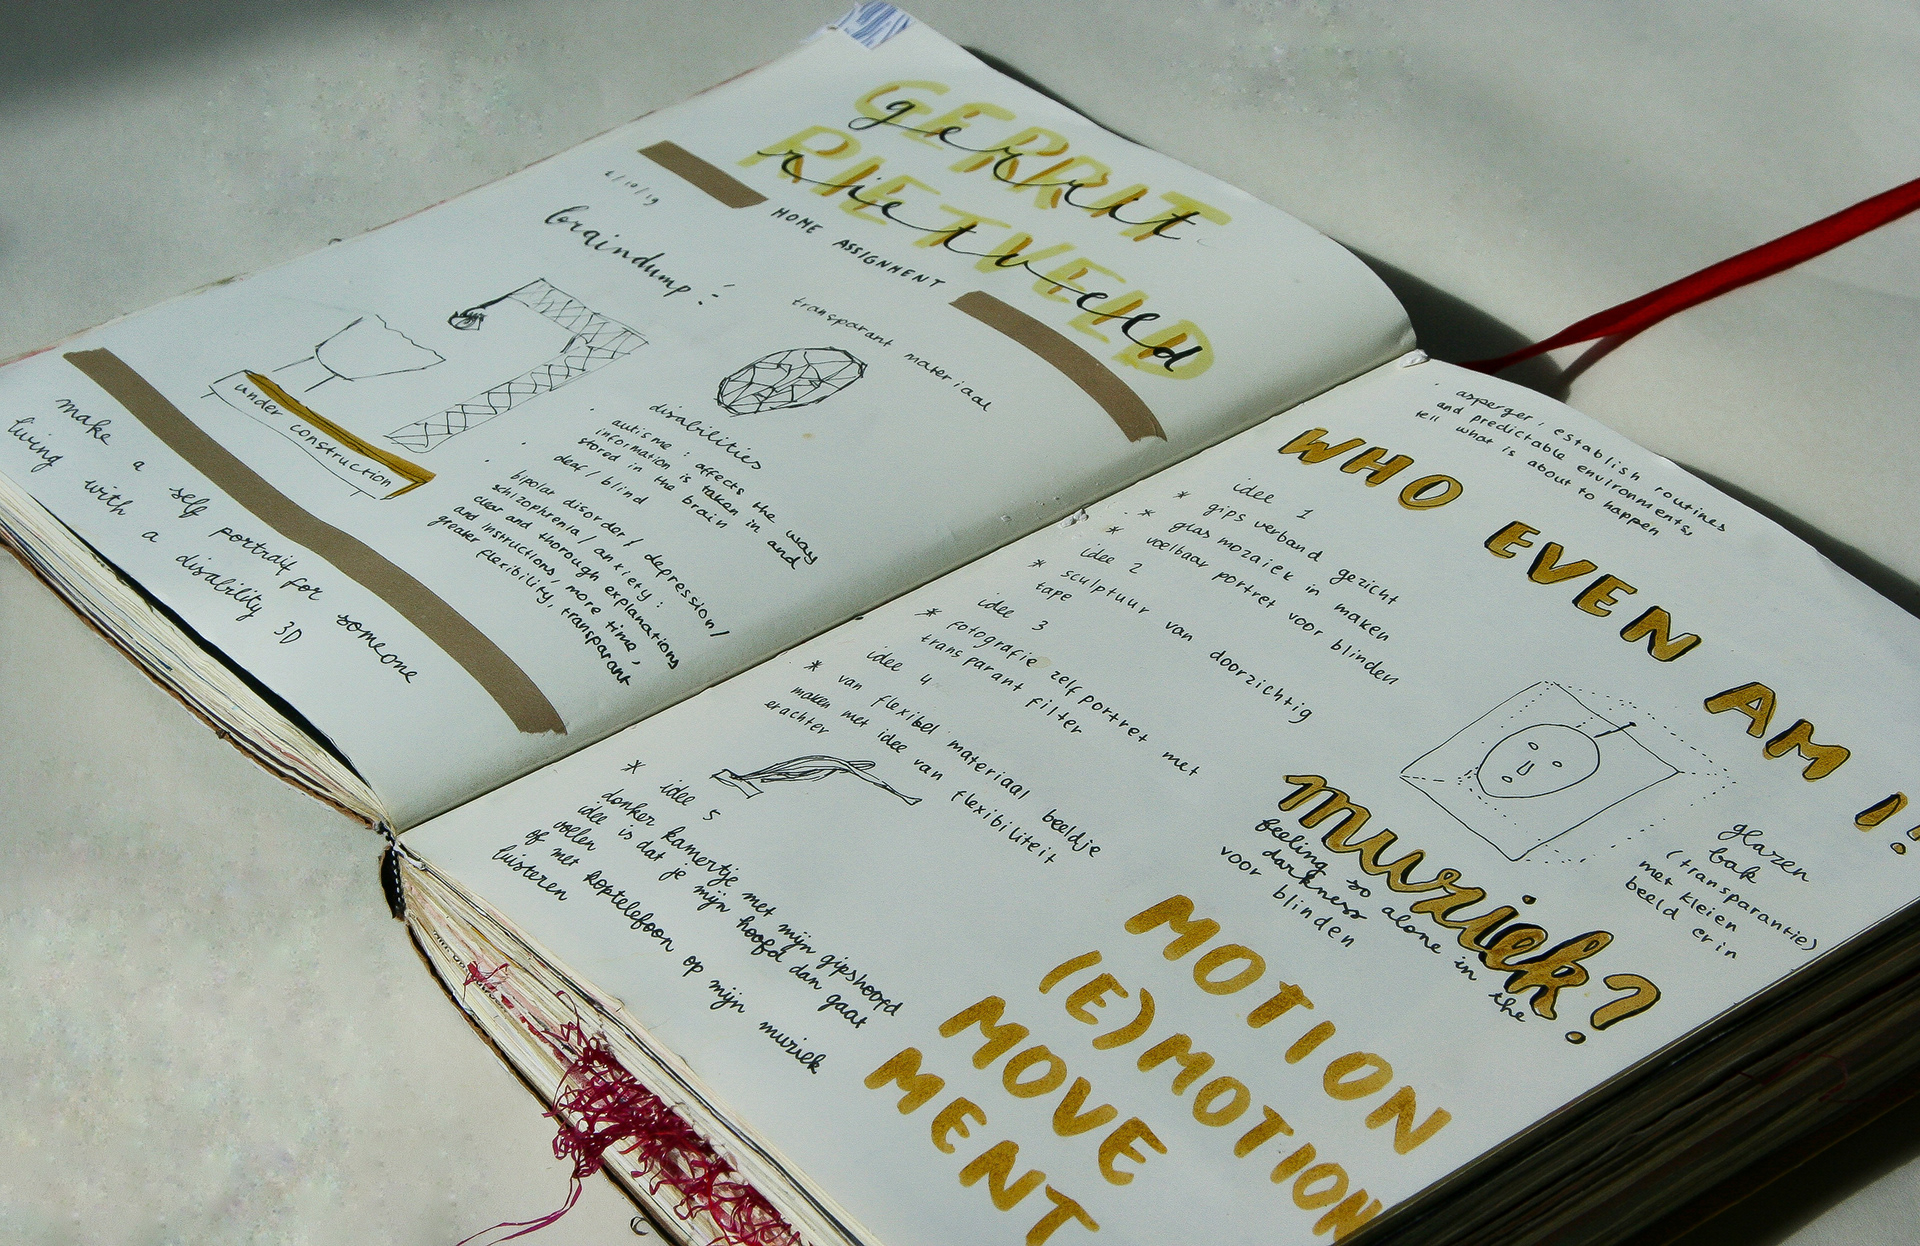 GERRIT
gerrit
RIETVELD
rietveld
HOME ASSIGNMENT
braindump:
transparant materiaal
under
construction
make a self portrait for someone
living with a disability 3D
disabilities
autisme: affects the way
information is taken in and
stored in the brain
deaf / blind
bipolar disorder / depression /
schizophrenia / anxiety:
clear and thorough explanations
and instructions, more time,
greater flexibility, transparant
asperger, establish routines
and predictable environments,
tell what is about to happen
WHO EVEN AM I!
idee 1
* gips verband gezicht
* glas mozaiek in maken
* voelbaar portret voor blinden
idee 2
* sculptuur van doorzichtig
tape
idee 3
* fotografie zelfportret met
transparant filter
idee 4
* van flexibel materiaal beeldje
maken met idee van flexibiliteit
erachter
* idee 5
donker kamertje met mijn gipshoofd
idee is dat je mijn hoofd dan gaat
voelen
of met koptelefoon op mijn muziek
luisteren
glazen
bak
(transparantie)
met kleien
beeld erin
muziek?
feeling so alone in the
darkness
voor blinden
MOTION
(E)MOTION
MOVE
MENT